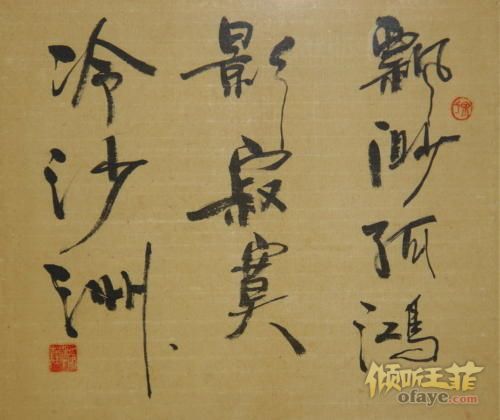 飄渺孤鴻
影寂寞
冷沙洲
倾听王菲
ofaye.com